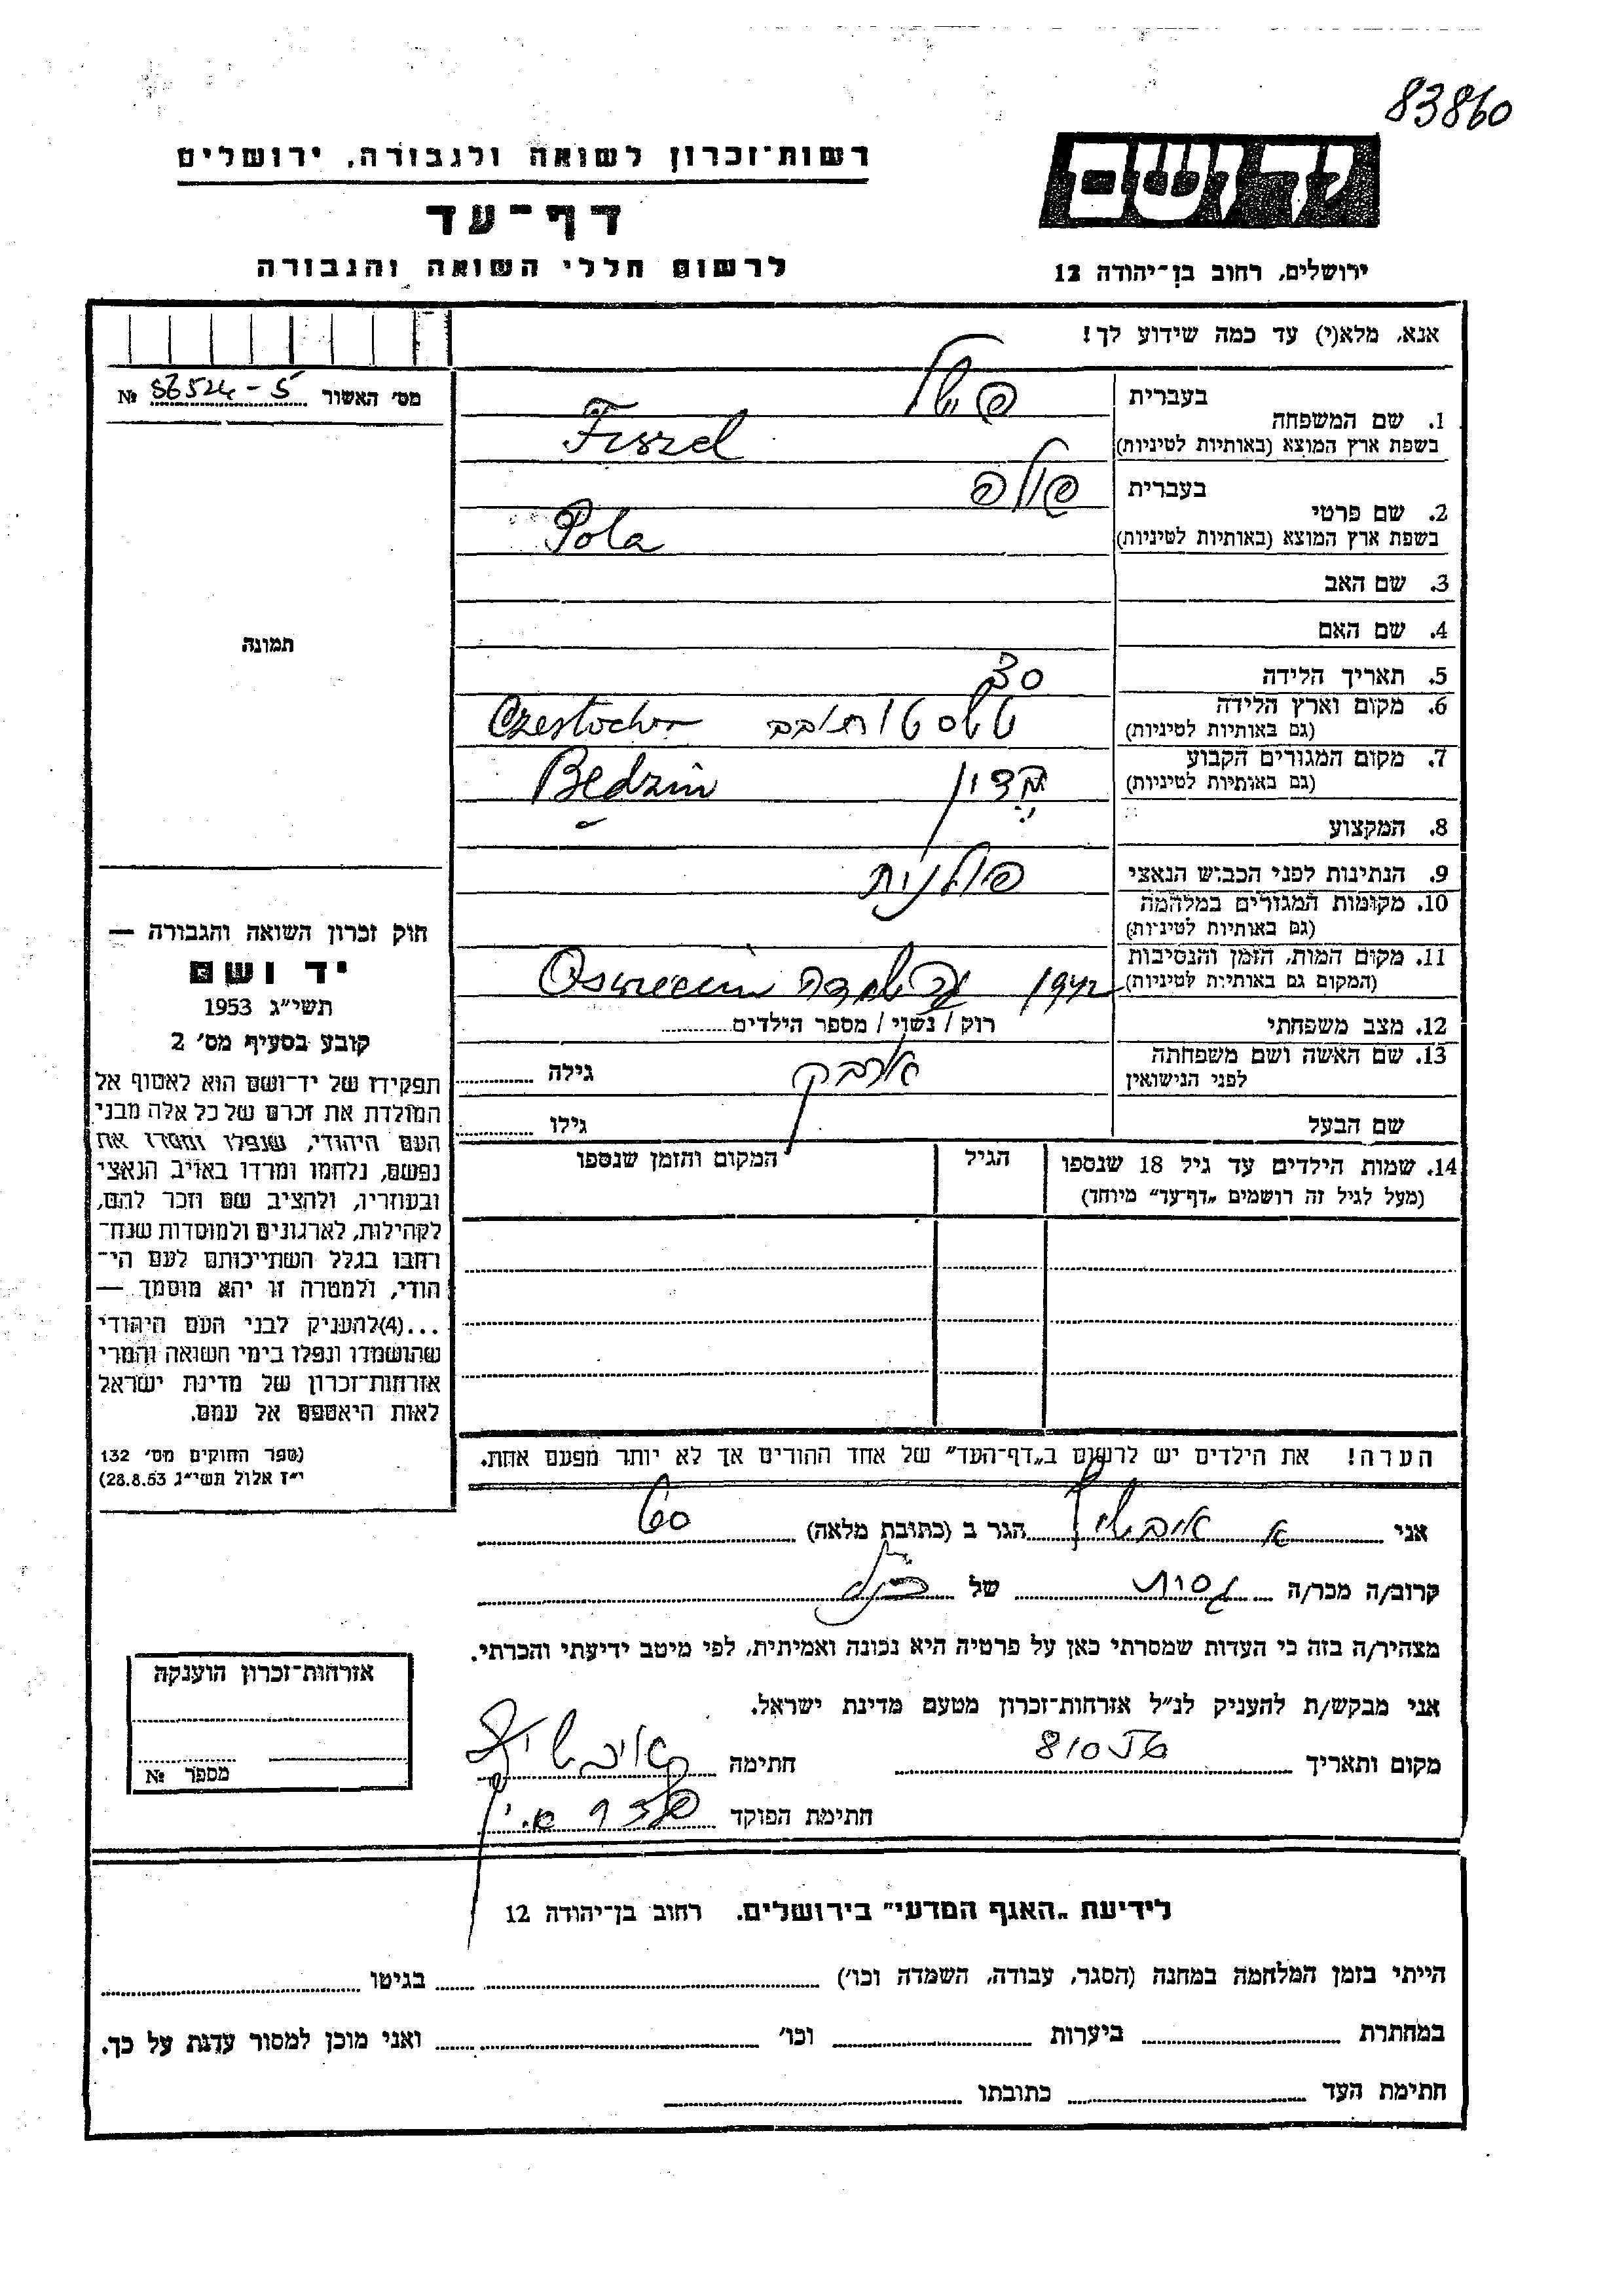 83860
רשות־זכרון לשואה ולגבורה, ירושלים
יד ושם
דף־עד
לרשום חללי השואה והגבורה
ירושלים, רחוב בן־יהודה 12
אנא, מלא(י) עד כמה שידוע לך!
מס׳ האשור № 86524-5
תמונה
בעברית
1. שם המשפחה פישל
בשפת ארץ המוצא (באותיות לטיניות) Fiszel
בעברית פולה
2. שם פרטי
בשפת ארץ המוצא (באותיות לטיניות) Pola
3. שם האב
4. שם האם
5. תאריך הלידה 30
6. מקום וארץ הלידה
(גם באותיות לטיניות) Czestochow
7. מקום המגורים הקבוע
(גם באותיות לטיניות) Będzin
8. המקצוע
9. הנתינות לפני הכבוש הנאצי פולנית
10. מקומות המגורים במלחמה
(גם באותיות לטיניות)
11. מקום המות, הזמן והנסיבות
(המקום גם באותיות לטיניות) 1942
12. מצב משפחתי רוק / נשוי / מספר הילדים
13. שם האשה ושם משפחתה
לפני הנישואין גילה
שם הבעל גילו
14. שמות הילדים עד גיל 18 שנספו הגיל המקום והזמן שנספו
(מעל לגיל זה רושמים „דף־עד״ מיוחד)
הערה! את הילדים יש לרשום ב„דף־העד״ של אחד ההורים אך לא יותר מפעם אחת.
חוק זכרון השואה והגבורה —
יד ושם
תשי״ג 1953
קובע בסעיף מס׳ 2
תפקידו של יד־ושם הוא לאסוף אל
המולדת את זכרם של כל אלה מבני
העם היהודי, שנפלו ומסרו את
נפשם, נלחמו ומרדו באויב הנאצי
ובעוזריו, ולהציב שם וזכר להם,
לקהילות, לארגונים ולמוסדות שנח־
רחבו בגלל השתייכותם לעם הי־
הודי, ולמטרה זו יהא מוסמך —
...(4)להעניק לבני העם היהודי
שהושמדו ונפלו בימי השואה והמרי
אזרחות־זכרון של מדינת ישראל
לאות היאספם אל עמם.
(ספר החוקים מס׳ 132
י״ז אלול תשי״ג 28.8.53)
אני הגר ב (כתובת מלאה)
קרוב/ה מכר/ה גיסות של
מצהיר/ה בזה כי העדות שמסרתי כאן על פרטיה היא נכונה ואמיתית, לפי מיטב ידיעתי והכרתי.
אני מבקש/ת להעניק לנ״ל אזרחות־זכרון מטעם מדינת ישראל.
מקום ותאריך חתימה
חתימת הפוקד
אזרחות־זכרון הוענקה
מספר №
לידיעת „האגף המדעי״ בירושלים, רחוב בן־יהודה 12
הייתי בזמן המלחמה במחנה (הסגר, עבודה, השמדה וכו׳) בגיטו
במחתרת ביערות וכו׳ ואני מוכן למסור עדות על כך.
חתימת העד כתובתו